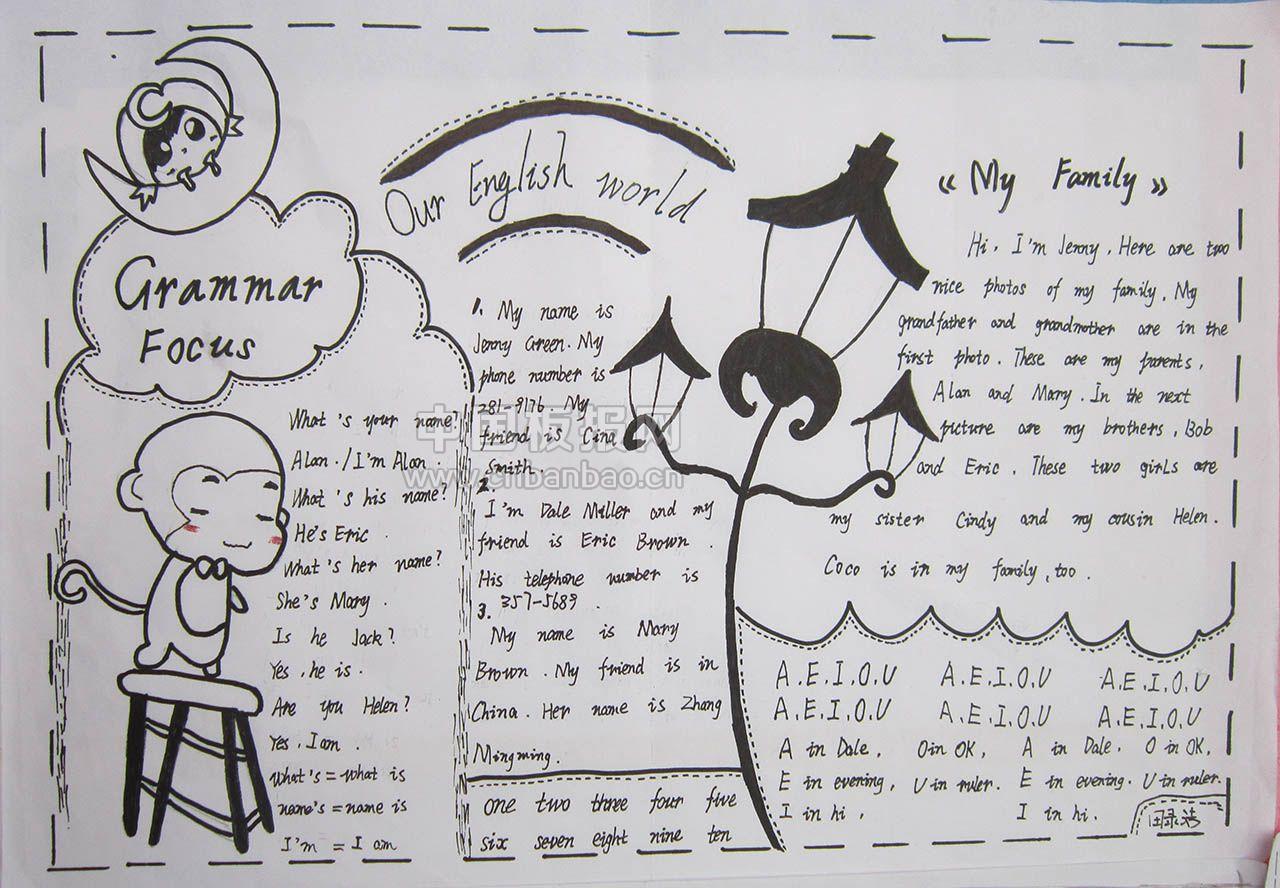 Our English world
Grammar
Focus
What's your name?
Alan./I'm Alan.
What's his name?
He's Eric.
What's her name?
She's Mary.
Is he Jack?
Yes, he is.
Are you Helen?
Yes, I am.
What's=what is
name's=name is
I'm = I am
1. My name is
Jenny Green. My
phone number is
281-9176. My
friend is Gina
Smith.
2.
I'm Dale Miller and my
friend is Eric Brown.
His telephone number is
357-5689.
3.
My name is Mary
Brown. My friend is in
China. Her name is Zhang
Mingming.
one two three four five
six seven eight nine ten
《My Family》
Hi, I'm Jenny, Here are two
nice photos of my family. My
grandfather and grandmother are in the
first photo. These are my parents,
Alan and Mary. In the next
picture are my brothers, Bob
and Eric. These two girls are
my sister Cindy and my cousin Helen.
Coco is in my family, too.
A.E.I.O.U A.E.I.O.U A.E.I.O.U
A.E.I.O.U A.E.I.O.U A.E.I.O.U
A in Dale, O in OK, A in Dale, O in OK,
E in evening, U in ruler. E in evening. U in ruler.
I in hi, I in hi.
中国板报网
www.cnbanbao.cn